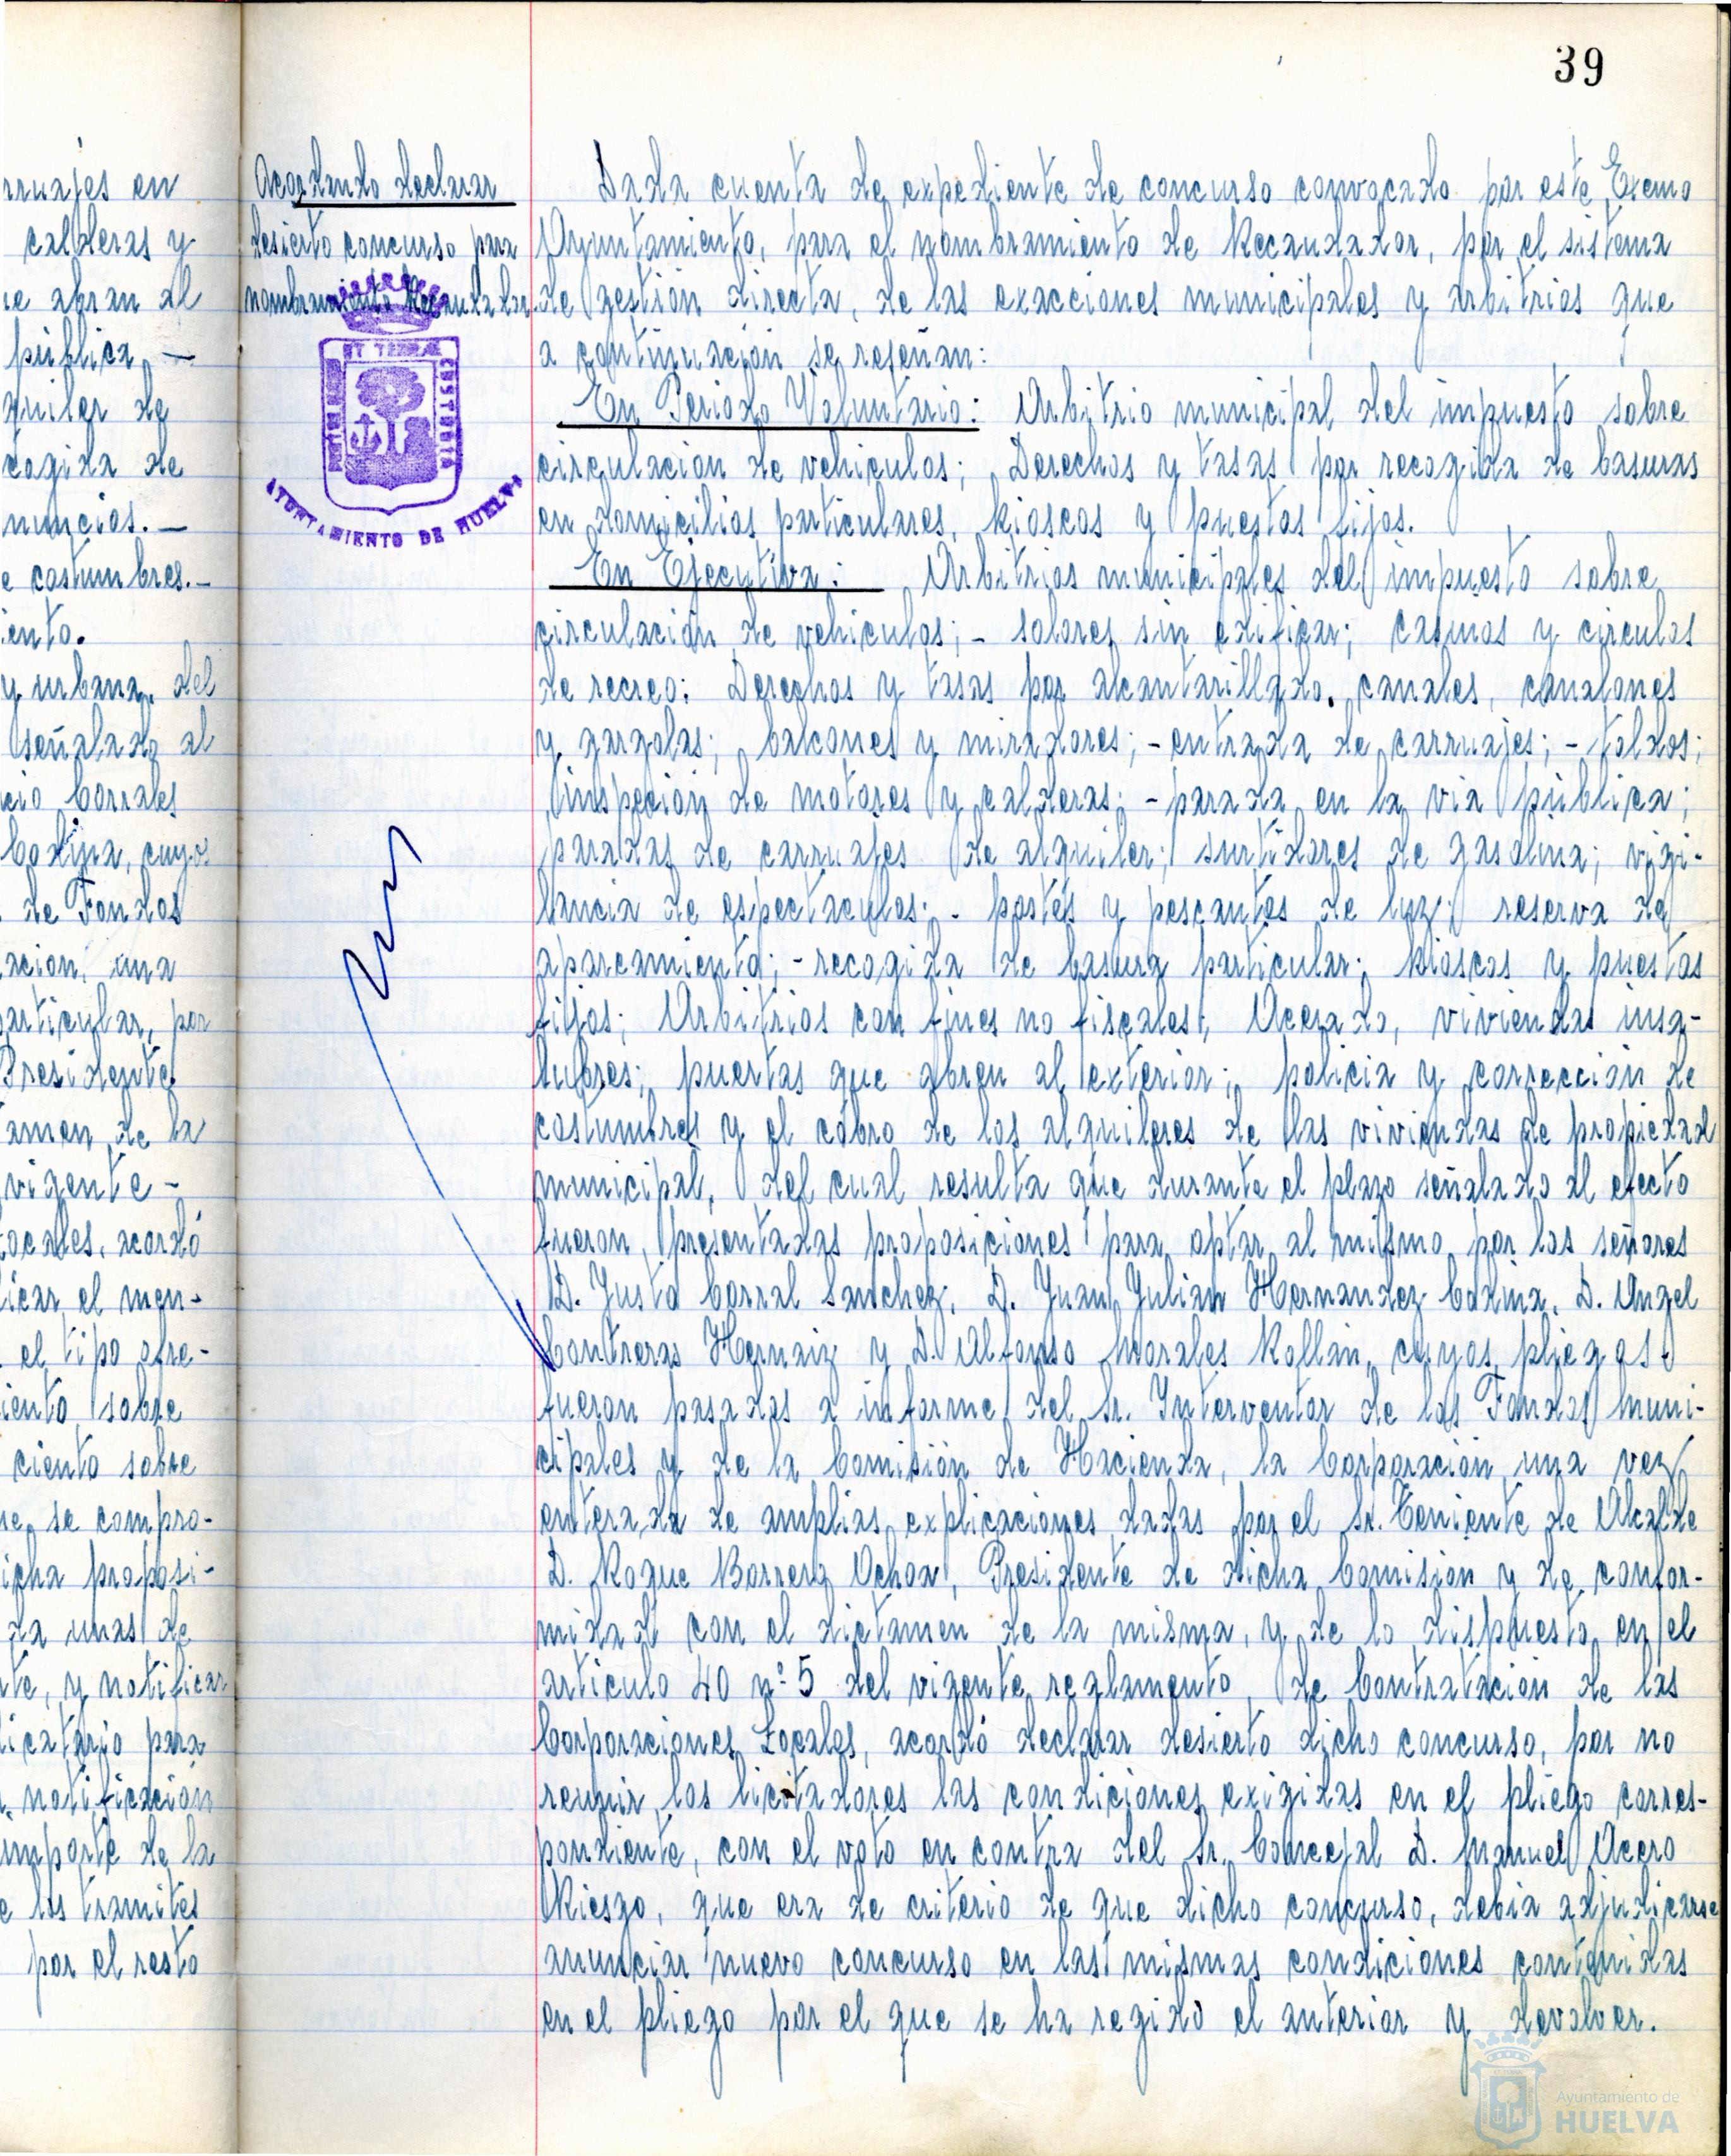 39
rruajes en
calderas y
ue abran al
pública, —
quiler de
cogida de
nuncios. —
e costumbres. —
iento.
y urbana, del
señalado al
cio Corrales
Codina, cuyos
de Fondos
acion, una
articular, por
Presidente
amen de la
vigente -
ocales, acordó
icar el men-
el tipo ofre-
iento sobre
ciento sobre
ue se compro-
icha proposi-
da unas de
te, y notificar
icatario para
notificación
importe de la
e los tramites
por el resto
Acordando declarar
desierto concurso para
nombramiento Recaudador
ET TERRAE
CUSTODIA
AYUNTAMIENTO DE HUELVA
Dada cuenta de expediente de concurso convocado por este Excmo
Ayuntamiento, para el nombramiento de Recaudador, por el sistema
de gestión directa, de las exacciones municipales y arbitrios que
a continuación se reseñan:
En Periodo Voluntario: Arbitrio municipal del impuesto sobre
circulación de vehiculos; Derechos y tasas por recogida de basuras
en domicilios particulares, kioscos y puestos fijos.
En Ejecutiva: Arbitrios municipales del impuesto sobre
circulación de vehiculos; - solares sin edificar; casinos y circulos
de recreo; Derechos y tasas por alcantarillado, canales, canalones
y gargolas; balcones y miradores; - entrada de carruajes; - toldos;
inspeción de motores y calderas; - parada en la via pública;
paradas de carruajes de alquiler; surtidores de gasolina; vigi-
lancia de espectaculos; - postes y pescantes de luz; reserva de
aparcamiento; - recogida de basura particular; kioscos y puestos
fijos; Arbitrios con fines no fiscales; Acerado, viviendas insa-
lubres; puertas que abren al exterior; policia y corrección de
costumbres y el cobro de los alquileres de las viviendas de propiedad
municipal, del cual resulta que durante el plazo señalado al efecto
fueron presentadas proposiciones para optar al mismo por los señores
D. Justo Corral Sanchez, D. Juan Julian Hernandez Codina, D. Angel
Contreras Hernaiz y D. Alfonso Morales Rollán, cuyos pliegos
fueron pasados a informe del Sr. Interventor de los Fondos Muni-
cipales y de la Comisión de Hacienda, la Corporación una vez
enterada de amplias explicaciones dadas por el Sr. Teniente de Alcalde
D. Roque Barrera Ochoa, Presidente de dicha Comisión y de confor-
midad con el dictamen de la misma, y de lo dispuesto en el
articulo 40 nº 5 del vigente reglamento, de Contratación de las
Corporaciones Locales, acordó declarar desierto dicho concurso, por no
reunir los licitadores las condiciones exigidas en el pliego corres-
pondiente, con el voto en contra del Sr. Concejal D. Manuel Acero
Riesgo, que era de criterio de que dicho concurso, debia adjudicarse
anunciar nuevo concurso en las mismas condiciones contenidas
en el pliego por el que se ha regido el anterior y devolver.
Ayuntamiento de
HUELVA